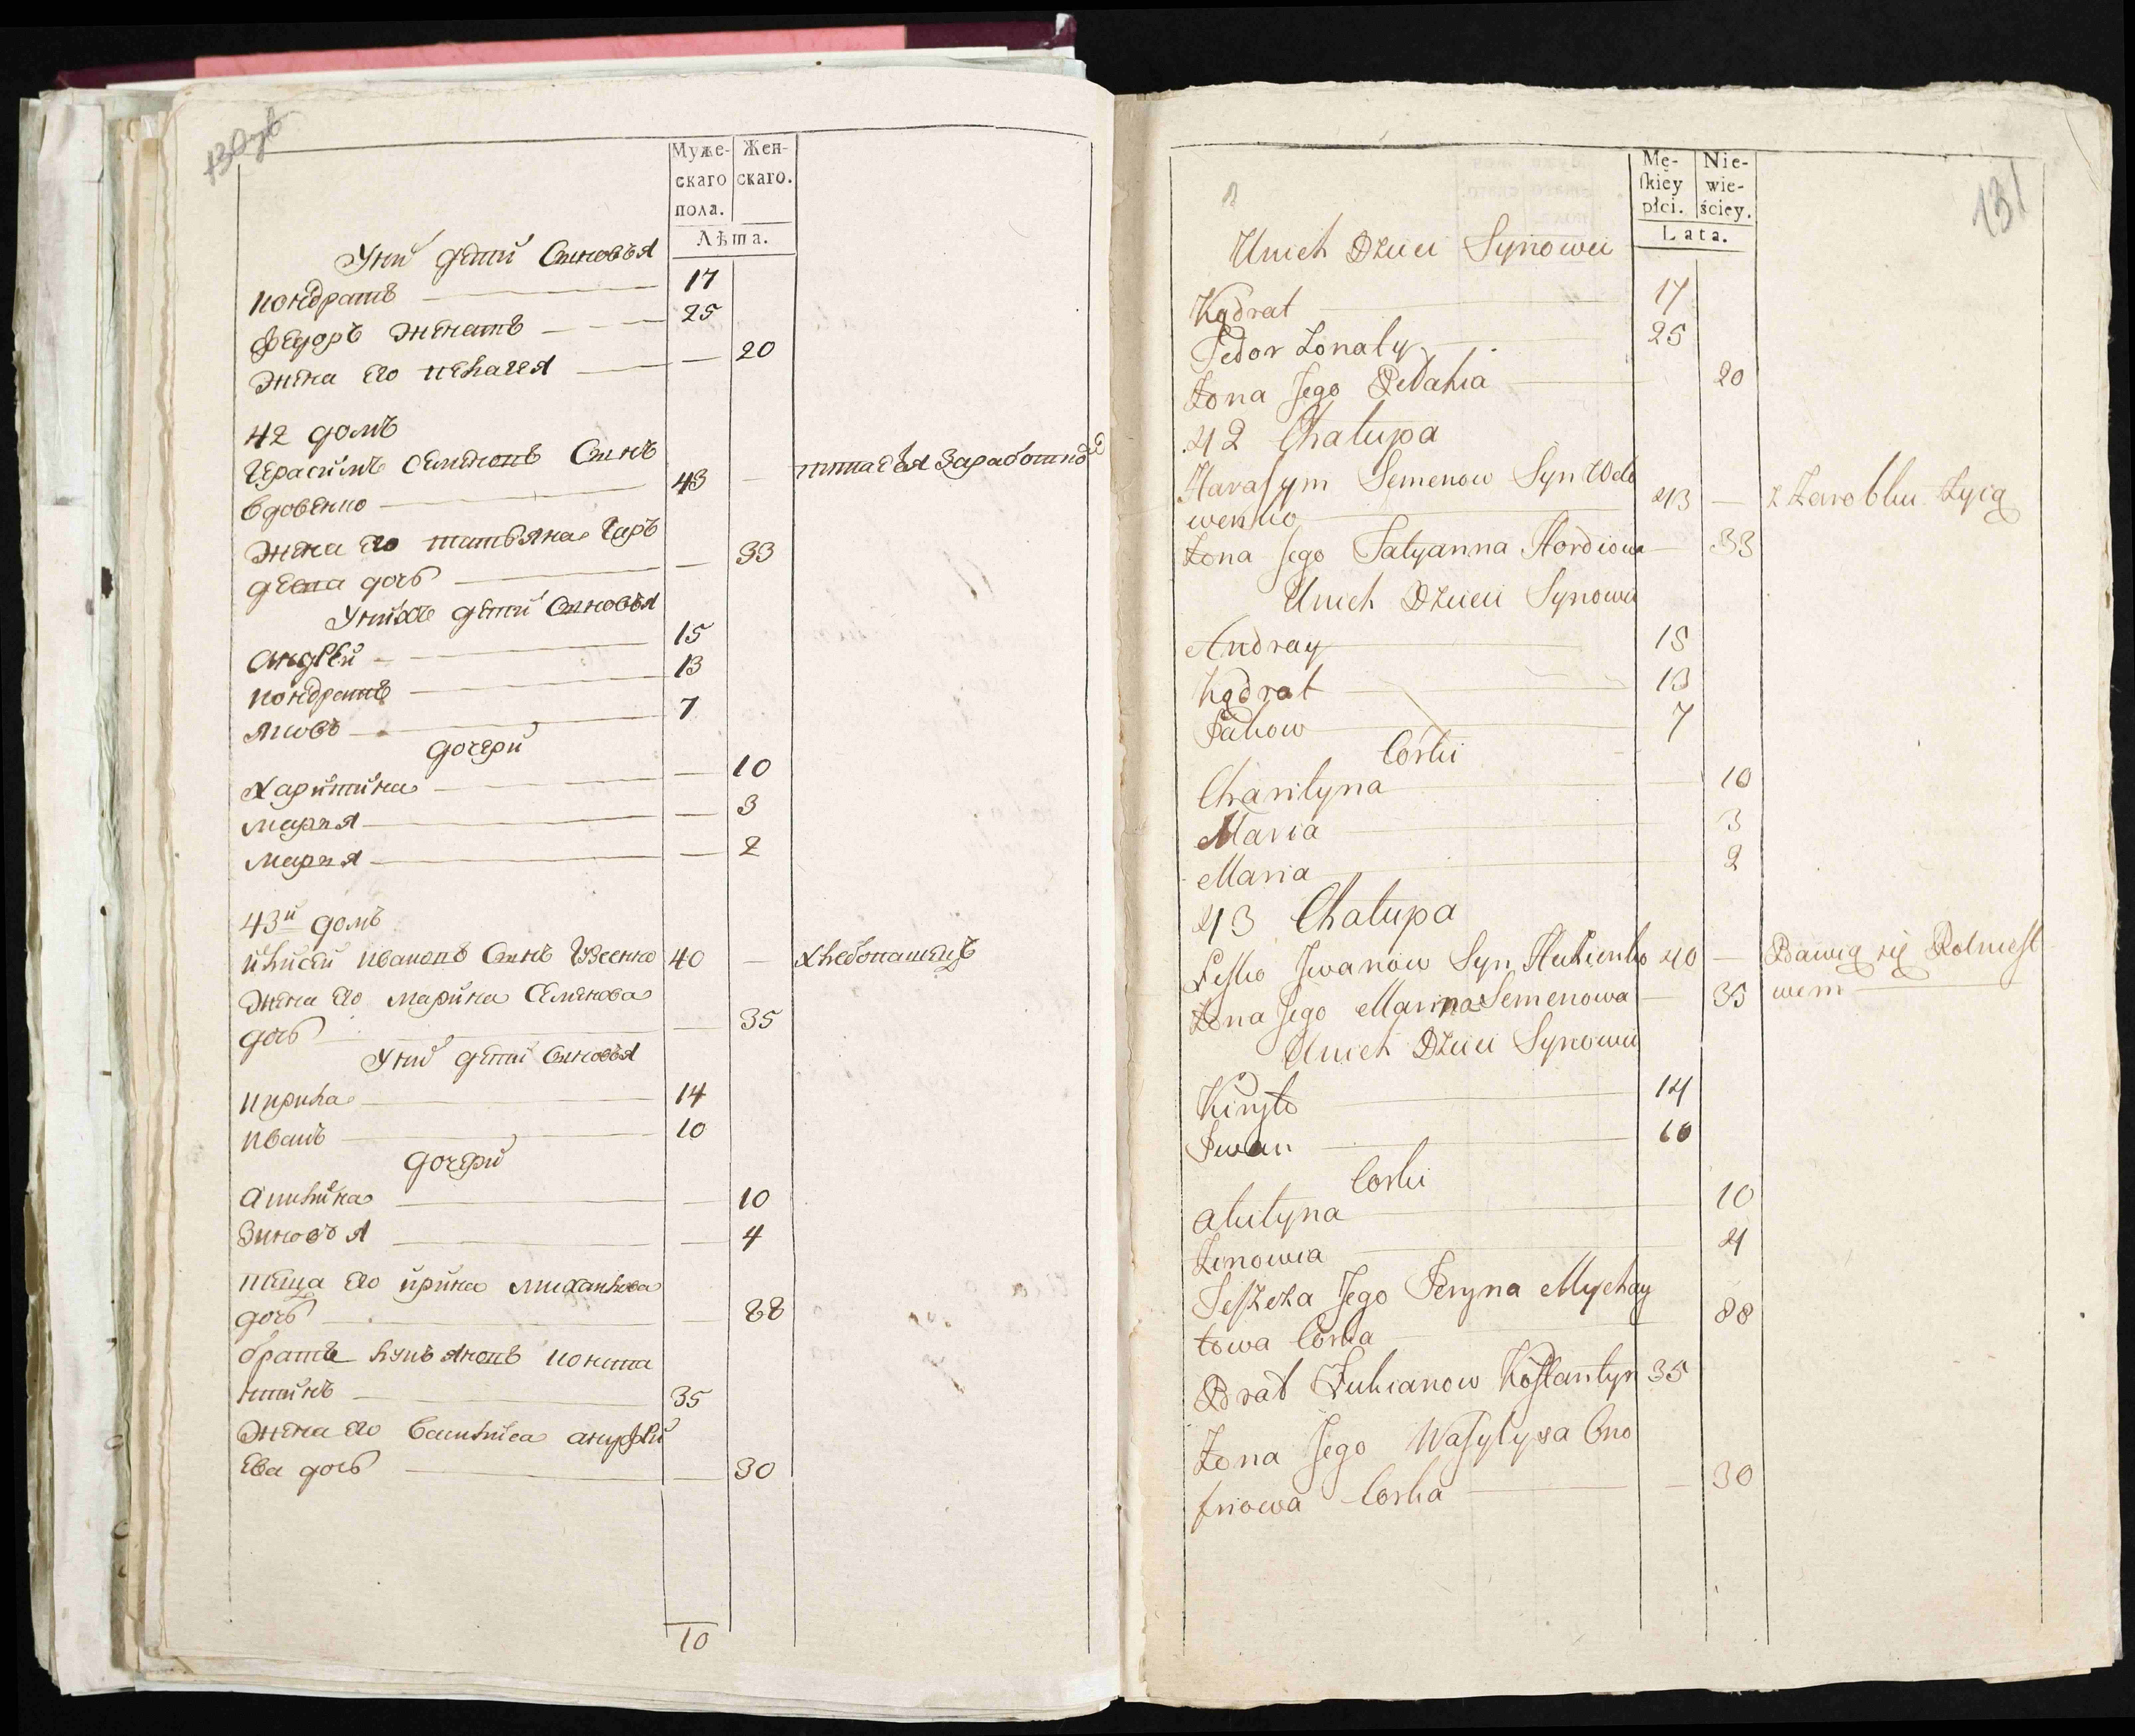 130 зв
Муже-
скаго
пола.
Жен-
скаго.
Лѣта.
У ни детй Сыновья
Кондратъ 17
Федоръ женатъ 25
жена его Пелагея — 20
42 домъ
Герасимъ Семеновъ Сынъ
вдовенко 43 —
питается Заработкой
жена его татьяна Гор
деева дочь — 33
У нихъ детй Сыновья
Андрей 15
Кондратъ 13
Яковъ 7
дочери
Харитина — 10
Марья — 3
Марья — 2
43й домъ
Иванов Сынъ 40 —
хлебопашецъ
Жена его Марина Семенова
дочь — 35
У ни детй Сыновья
Кирила 14
Иванъ 10
дочери
Акилина — 10
Зиновья — 4
теща его Ирина Михайлова
дочь — 88
братъ Лукьяновъ Конста
нтинъ 35
Жена его Василиса ануфри
ева дочь — 30
10
131
Mę-
skiey
płci.
Nie-
wie-
ściey.
Lata.
Unich Dzieci Synowei
Kądrat 17
Fedor Żonaty 25
Żona Jego Pelahia 20
42 Chałupa
Harasym Semenow Syn Wdo
wenko 43 — z Zarobku Żyią
Żona Jego Tatyanna Hordiowa — 33
Unich Dzieci Synowie
Andray 15
Kądrat 13
Jakow 7
Corki
Charityna — 10
Maria 3
Maria 2
43 Chałupa
Iwanow Syn 40 — Bawią się Rolnicst
Żona Jego Marina Semenowa — 35 wem
Unich Dzieci Synowie
Kiryło 14
Iwan 10
Corki
10
Zenowia 4
Teszcza Jego Jeryna Mychay
łowa Corka 88
Brat Łukianow Kostantyn 35
Żona Jego Wasylysa Ono
friowa Corka — 30